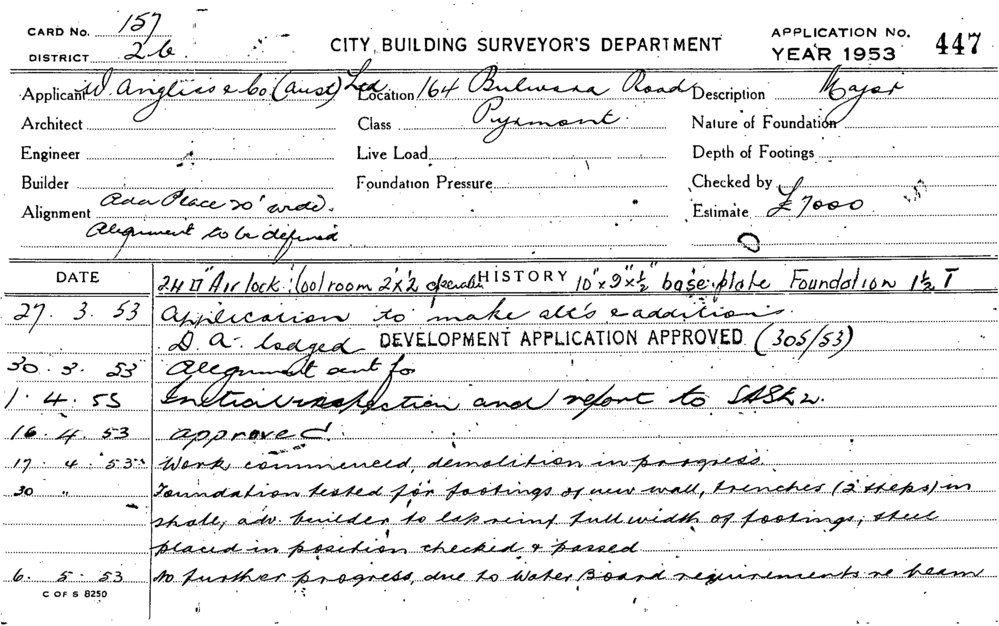 CARD No. 157
DISTRICT 26
CITY BUILDING SURVEYOR'S DEPARTMENT
APPLICATION No.
YEAR 1953 447
Applicant W. Angliss & Co (Aust) Ltd Location 164 Bulwara Road Description Major
Architect Class Pyrmont. Nature of Foundation
Engineer Live Load Depth of Footings
Builder Foundation Pressure Checked by
Alignment Ada Place 20' wide. Estimate £7000
Alignment to be defined
DATE HISTORY
24 □" Air lock: Coolroom 2'x2' 10"x9"x½" base plate Foundation 1½ T
27. 3. 53 Application to make alt's & additions.
D.A. lodged DEVELOPMENT APPLICATION APPROVED (305/53)
30. 3. 53 Alignment
1. 4. 53 Initial inspection and report to
16. 4. 53 approved.
17. 4. 53 Work commenced, demolition in progress.
30 " Foundation tested for footings of new wall, trenches (2 steps) in
shale, adv. builder to lap reinf full width of footings, steel
placed in position checked & passed
6. 5. 53 No further progress, due to Water Board requirements re beam
C OF S 8250